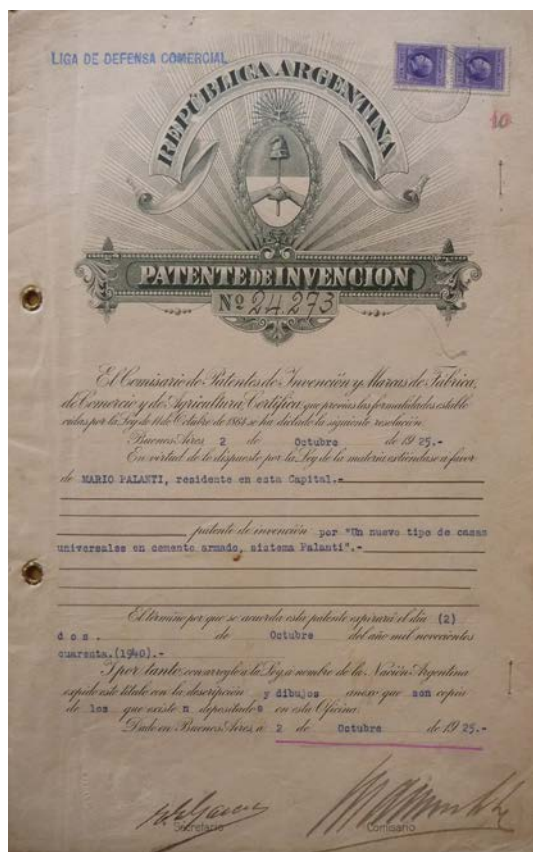 LIGA DE DEFENSA COMERCIAL
REPÚBLICA ARGENTINA
10
PATENTE DE INVENCION
Nº 24.273
El Comisario de Patentes de Invención y Marcas de Fábrica,
de Comercio y de Agricultura Certifica; que prévias las formalidades estable
cidas por la Ley de 11 de Octubre de 1864 se ha dictado la siguiente resolución.
Buenos Aires, 2 de Octubre de 1925.-
En virtud de lo dispuesto por la Ley de la materia extiéndase a favor
de MARIO PALANTI, residente en esta Capital.-
patente de invención por "Un nuevo tipo de casas
universales en cemento armado, sistema Palanti".-
El término por que se acuerda esta patente expirará el día (2)
d o s . de Octubre del año mil novecientos
cuarenta.(1940).-
Y por tanto, con arreglo a la Ley, a nombre de la Nación Argentina
expido este título con la descripción y dibujos anexo que son copia
de los que existe n depositado s en esta Oficina.
Dado en Buenos Aires, a 2 de Octubre de 1925.-
Secretario
Comisario